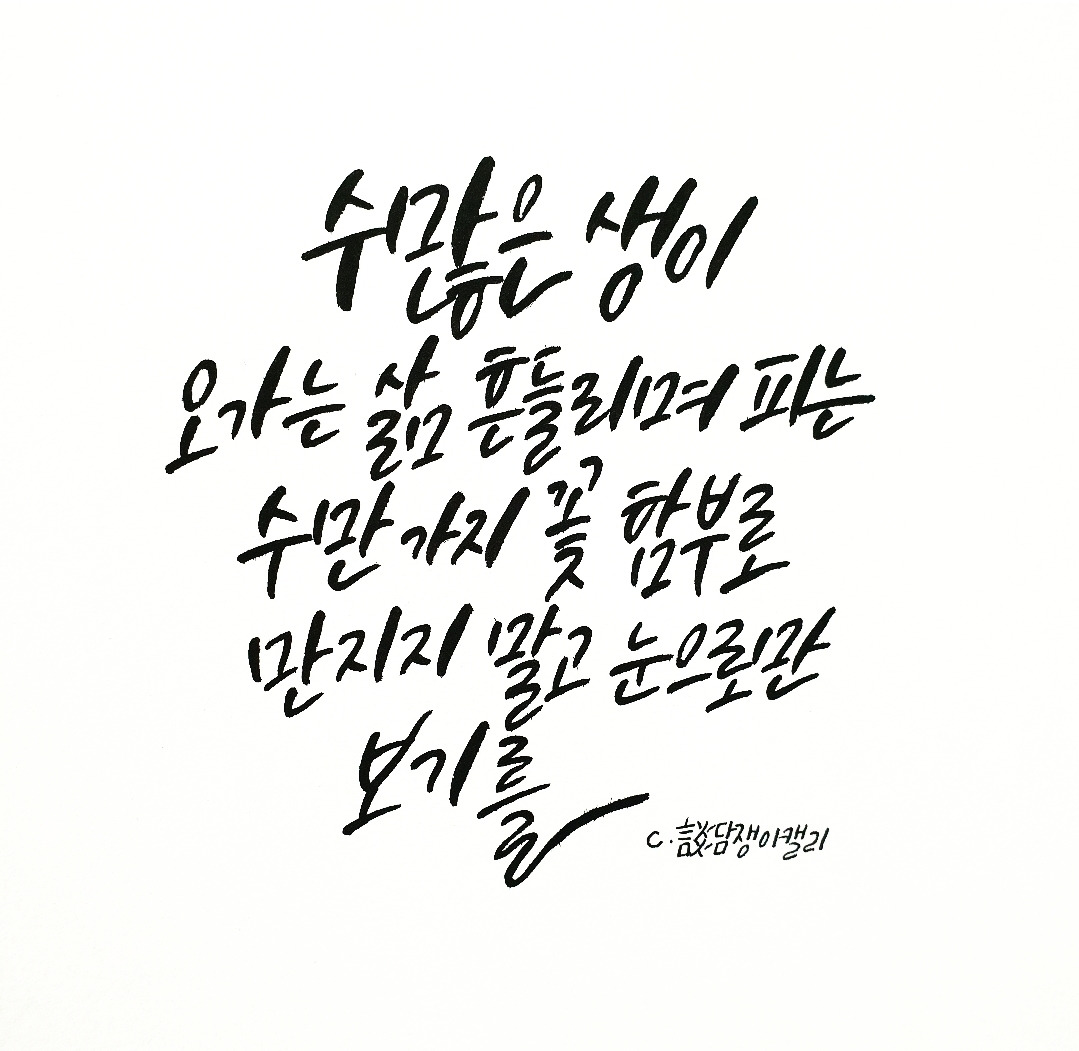 쉬많은 생이
오가는 삶 흔들리며 피는
수만 가지 꽃 함부로
만지지 말고 눈으로만
보기를
c. 談담쟁이캘리